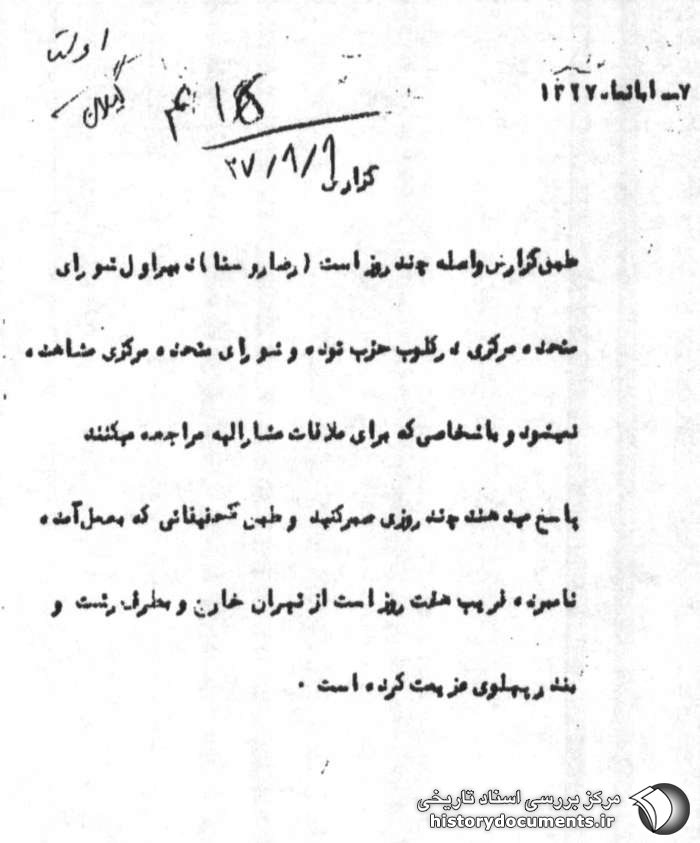 ۷ـ ابانماه ۱۳۲۷
گیلان
۲۷/۸/۹
گزارش
طبق گزارش واصله چند روز است (رضا روستا) دبیر اول شورای
متحده مرکزی در کلوب حزب توده و شورای متحده مرکزی مشاهده
نمیشود و باشخاصی که برای ملاقات مشارالیه مراجعه میکنند
پاسخ میدهند چند روزی صبر کنید و طبق تحقیقاتی که بعمل آمده
نامبرده قریب هفت روز است از تهران خارج و بطرف رشت و
بندر پهلوی عزیمت کرده است .
مرکز بررسی اسناد تاریخی
historydocuments.ir